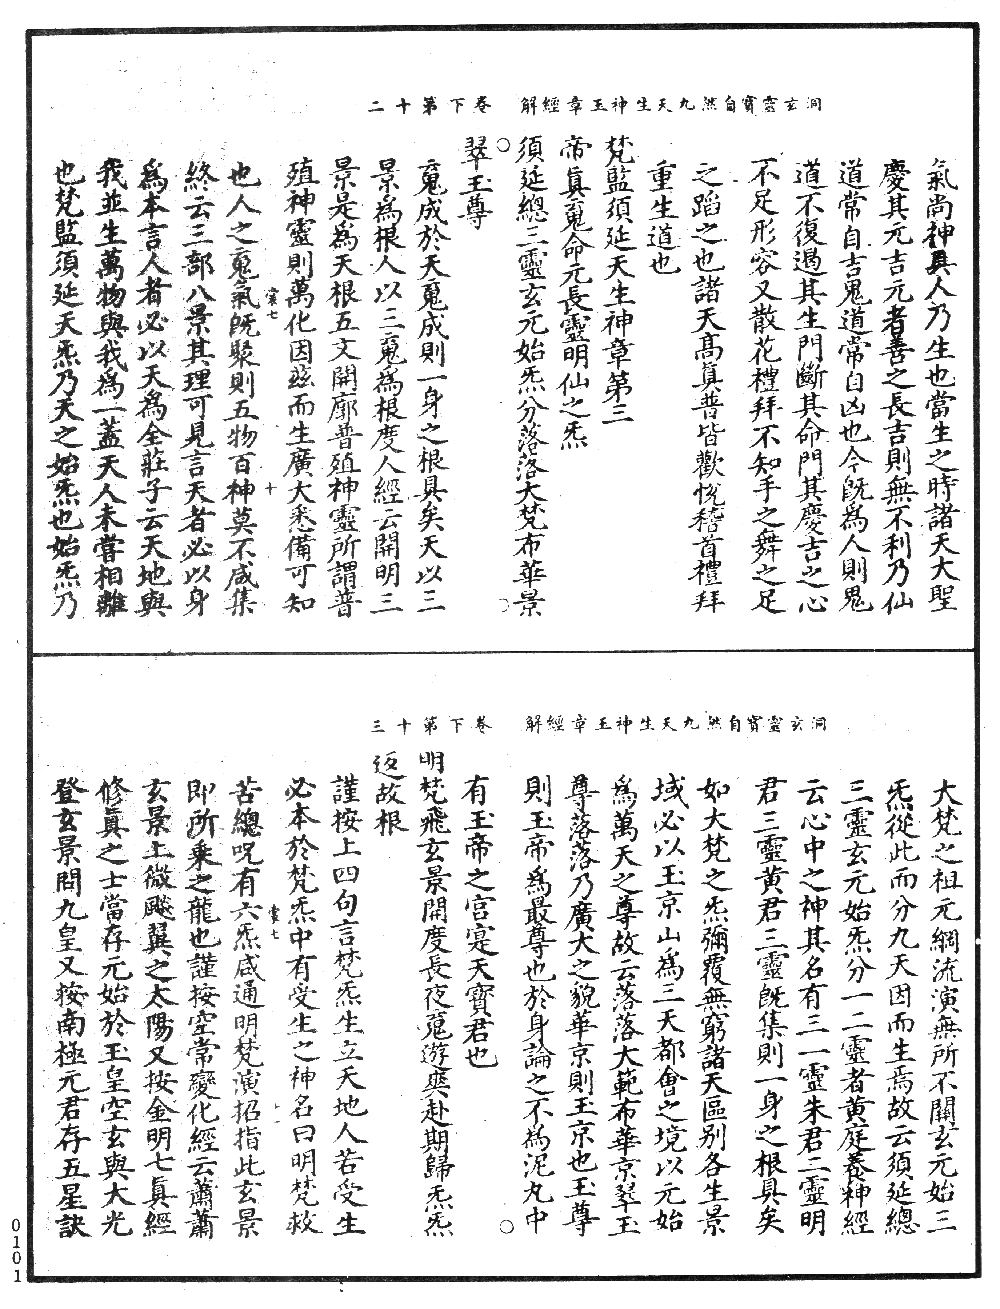 洞玄靈寶自然九天生神玉章經解　卷下第十二
氣尚神具人乃生也當生之時諸天大聖
慶其元吉元者善之長吉則無不利乃仙
道常自吉鬼道常自凶也今旣爲人則鬼
道不復遏其生門斷其命門其慶吉之心
不足形容又散花禮拜不知手之舞之足
之蹈之也諸天髙眞普皆歡恱稽首禮拜
重生道也
梵監須延天生神章第三
帝眞䰟命元長靈明仙之炁
須延總三靈玄元始炁分落落大梵布華景
翠玉尊
䰟成於天䰟成則一身之根具矣天以三
景爲根人以三䰟爲根度人經云開明三
景是爲天根五文開廓普殖神靈所謂普
殖神靈則萬化因茲而生廣大悉備可知
也人之䰟氣旣聚則五物百神莫不咸集
終云三部八景其理可見言天者必以身
爲本言人者必以天爲全莊子云天地與
我並生萬物與我爲一蓋天人未甞相離
也梵監須延天炁乃天之始炁也始炁乃
洞玄靈寶自然九天生神玉章經解　卷下第十三
大梵之祖元綱流演無所不關玄元始三
炁從此而分九天因而生焉故云須延總
三靈玄元始炁分一二靈者黄庭養神經
云心中之神其名有三一靈朱君二靈明
君三靈黄君三靈旣集則一身之根具矣
如大梵之炁彌覆無窮諸天區别各生景
域必以玉京山爲三天都會之境以元始
爲萬天之尊故云落落大範布華京翠玉
尊落落乃廣大之貌華京則玉京也玉尊
則玉帝爲最尊也於身論之不爲泥丸中
有玉帝之宫寔天寳君也
明梵飛玄景開度長夜䰟遊爽赴期歸炁炁
返故根
謹按上四句言梵炁生立天地人若受生
必本於梵炁中有受生之神名曰明梵救
苦總呪有六炁咸通明梵演招指此玄景
即所乘之龍也謹按空常變化經云蕭蕭
玄景上微飈翼之太陽又按金明七眞經
修眞之士當存元始於玉皇空玄與大光
登玄景問九皇又按南極元君存五星訣
0101